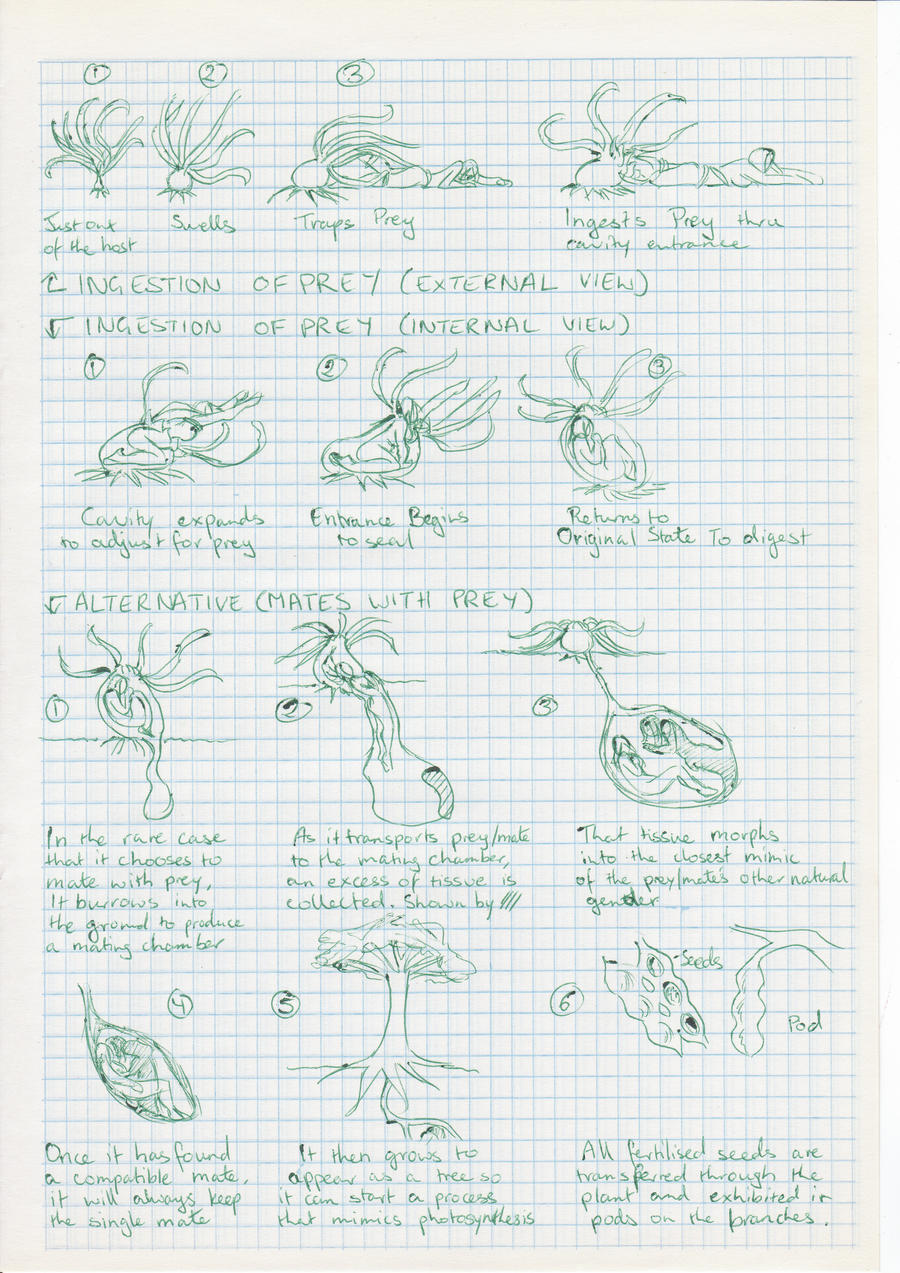 1
2
3
Just out
of the host
Swells
Traps Prey
Ingests Prey thru
cavity entrance
INGESTION OF PREY (EXTERNAL VIEW)
INGESTION OF PREY (INTERNAL VIEW)
1
2
3
Cavity expands
to adjust for prey
Entrance Begins
to seal
Returns to
Original State To digest
ALTERNATIVE (MATES WITH PREY)
1
2
3
In the rare case
that it chooses to
mate with prey,
It burrows into
the ground to produce
a mating chamber
As it transports prey/mate
to the mating chamber,
an excess of tissue is
collected. Shown by ////
That tissue morphs
into the closest mimic
of the prey/mate's other natural
gender
4
5
6
Seeds
Pod
Once it has found
a compatible mate,
it will always keep
the single mate
It then grows to
appear as a tree so
it can start a process
that mimics photosynthesis
All fertilised seeds are
transferred through the
plant and exhibited in
pods on the branches.